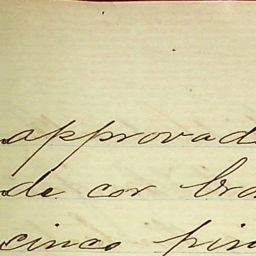 approvad
de cor bra
cinco pin